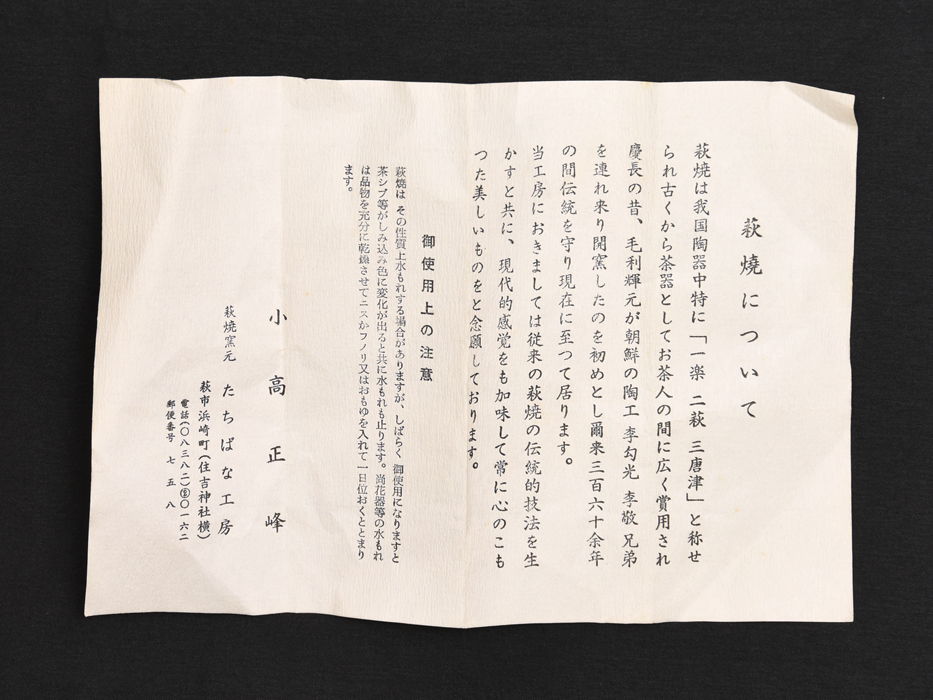 萩焼について
萩焼は我国陶器中特に「一楽 二萩 三唐津」と称せ
られ古くから茶器としてお茶人の間に広く賞用され
慶長の昔、毛利輝元が朝鮮の陶工 李勾光 李敬 兄弟
を連れ来り開窯したのを初めとし爾来三百六十余年
の間伝統を守り現在に至つて居ります。
当工房におきましては従来の萩焼の伝統的技法を生
かすと共に、現代的感覚をも加味して常に心のこも
つた美しいものをと念願しております。
御使用上の注意
萩焼は その性質上水もれする場合がありますが、しばらく 御使用になりますと
茶シブ等がしみ込み色に変化が出ると共に水もれも止ります。尚花器等の水もれ
は品物を充分に乾燥させてニスかフノリ又はおもゆを入れて一日位おくととまり
ます。
小高正峰
萩焼窯元 たちばな工房
萩市浜崎町(住吉神社横)
電話(〇八三八二)②〇一六二
郵便番号 七五八